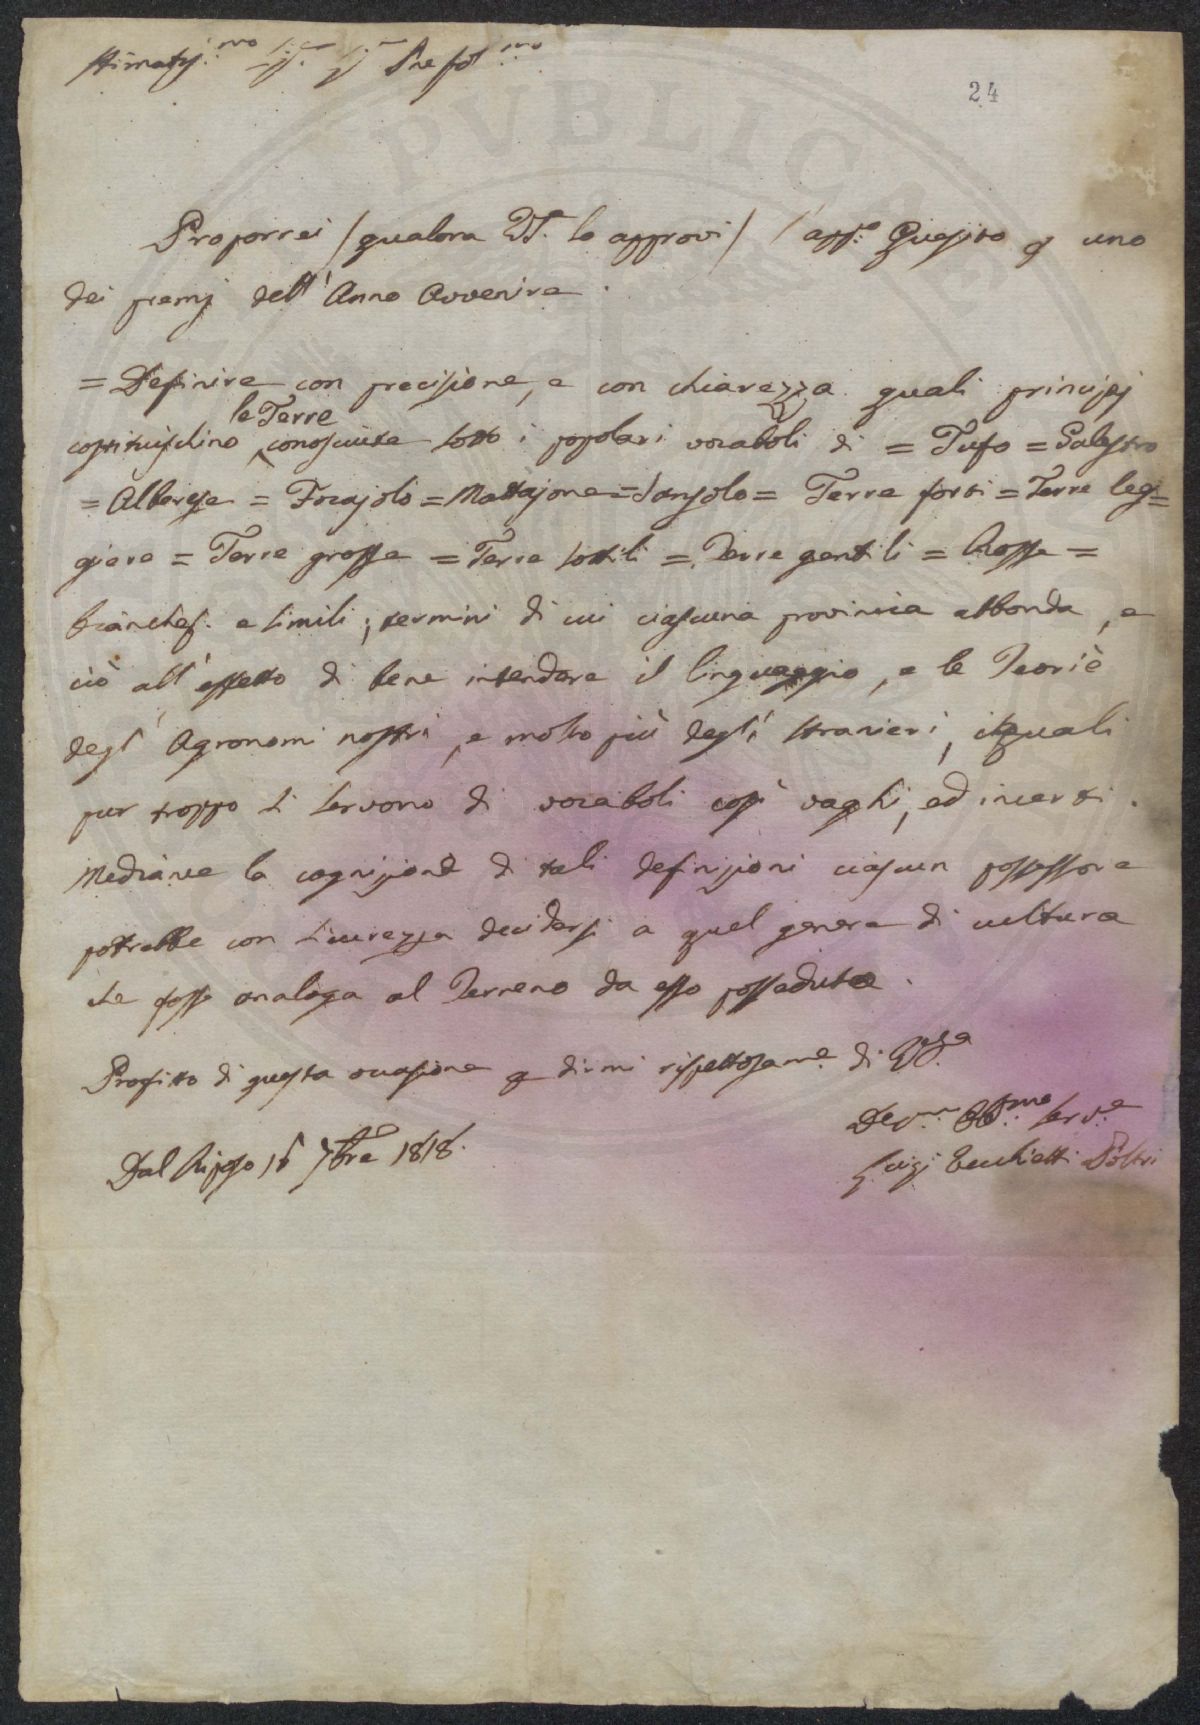 Stimatis.mo Sig.r Sig.r Pne Col.mo
24
Proporrei / qualora V.S. lo approvi / l'app.o Quesito p uno
dei premj dell'Anno Avvenire.
= Definire con precisione, e con chiarezza quali principj
le Terre
costituischino conosciute sotto i popolari vocaboli di = Tufo = Galestro
= Alberese = Focajolo = Mattajone = Sansolo = Terre forti = Terre leg=
giere = Terre grosse = Terre sottili = Terre gentili = Rosse =
bianches. e simili; termini di cui ciascuna provincia abbonda, e
ciò all'effetto di bene intendere il linguaggio, e le Teorie
degl'Agronomi nostri, e molto più degl'i stranieri, i quali
pur troppo si servono di vocaboli così vaghi, ed incerti.
Mediante la cognizione di tali definizioni ciascun possessore
potrebbe con sicurezza decidersi a quel genere di cultura
che fosse analoga al Terreno da esso posseduto.
Profitto di questa occasione p dirmi rispettosame. di V.S.a
Dev.mo Obb.mo Serv.e
Dal Riposo 16 7bre 1818.
Luigi Tecchietti Poltri